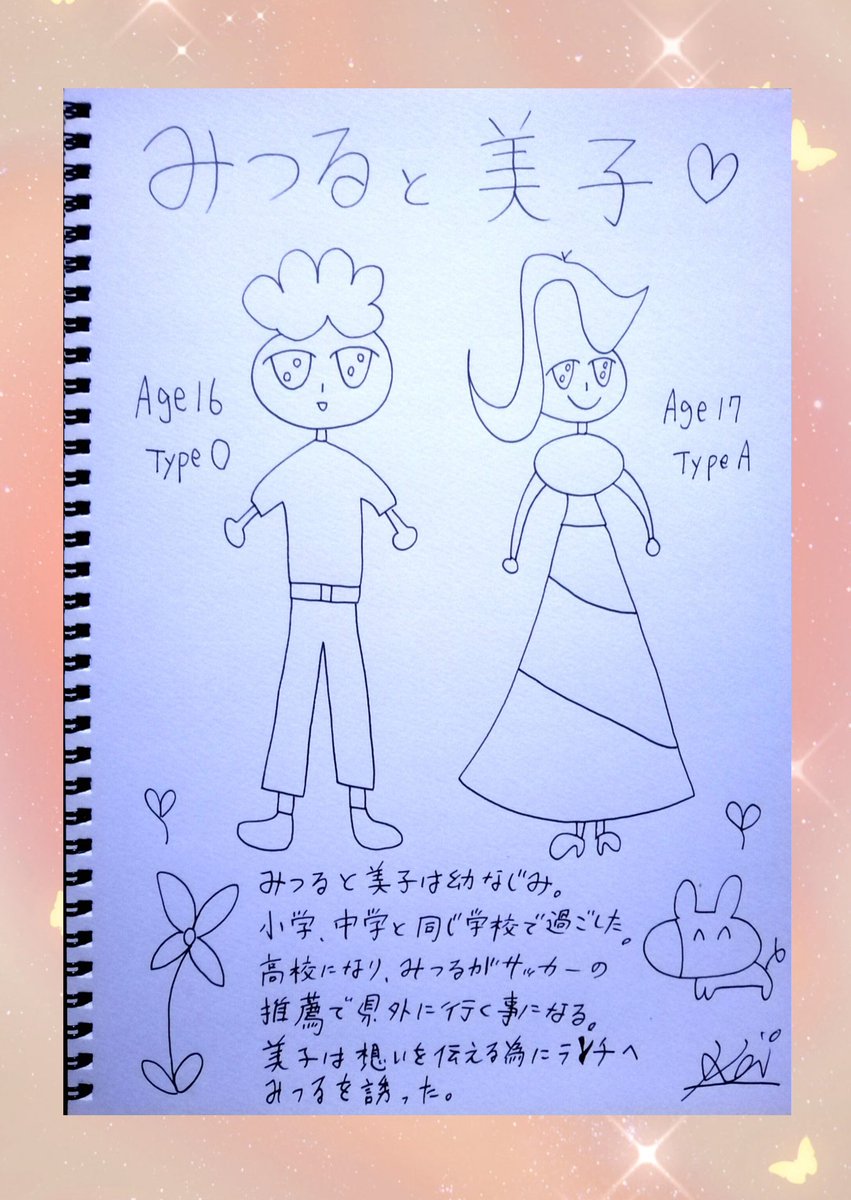 みつると美子♡
Age16
Type O
Age17
Type A
みつると美子は幼なじみ。
小学、中学と同じ学校で過ごした。
高校になり、みつるがサッカーの
推薦で県外に行く事になる。
美子は想いを伝える為にランチへ
みつるを誘った。